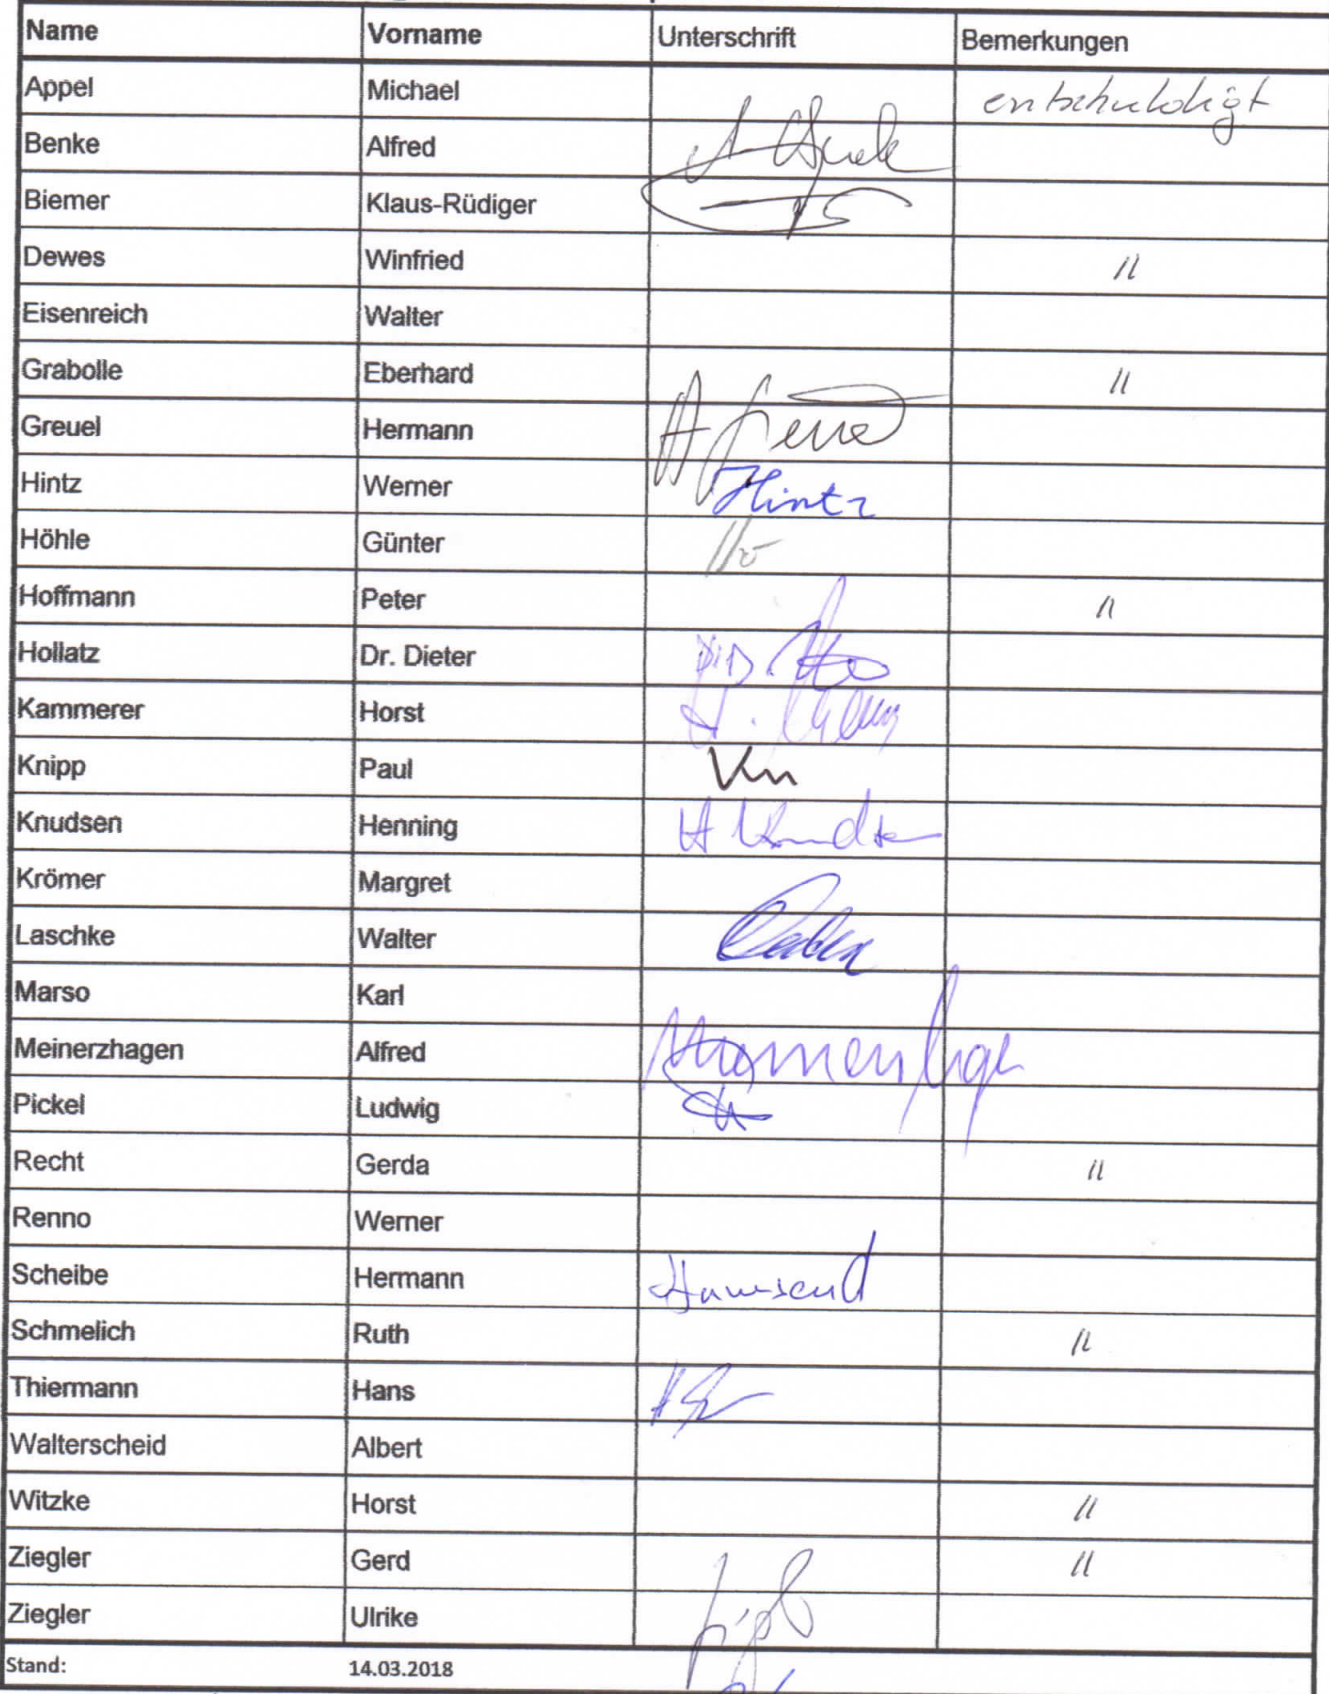 Name Vorname Unterschrift Bemerkungen
Appel Michael entschuldigt
Benke Alfred
Biemer Klaus-Rüdiger
Dewes Winfried 〃
Eisenreich Walter
Grabolle Eberhard 〃
Greuel Hermann
Hintz Werner Hintz
Höhle Günter
Hoffmann Peter 〃
Hollatz Dr. Dieter
Kammerer Horst
Knipp Paul Kn
Knudsen Henning H Knudsen
Krömer Margret
Laschke Walter
Marso Karl
Meinerzhagen Alfred
Pickel Ludwig
Recht Gerda 〃
Renno Werner
Scheibe Hermann
Schmelich Ruth 〃
Thiermann Hans
Walterscheid Albert
Witzke Horst 〃
Ziegler Gerd 〃
Ziegler Ulrike
Stand: 14.03.2018